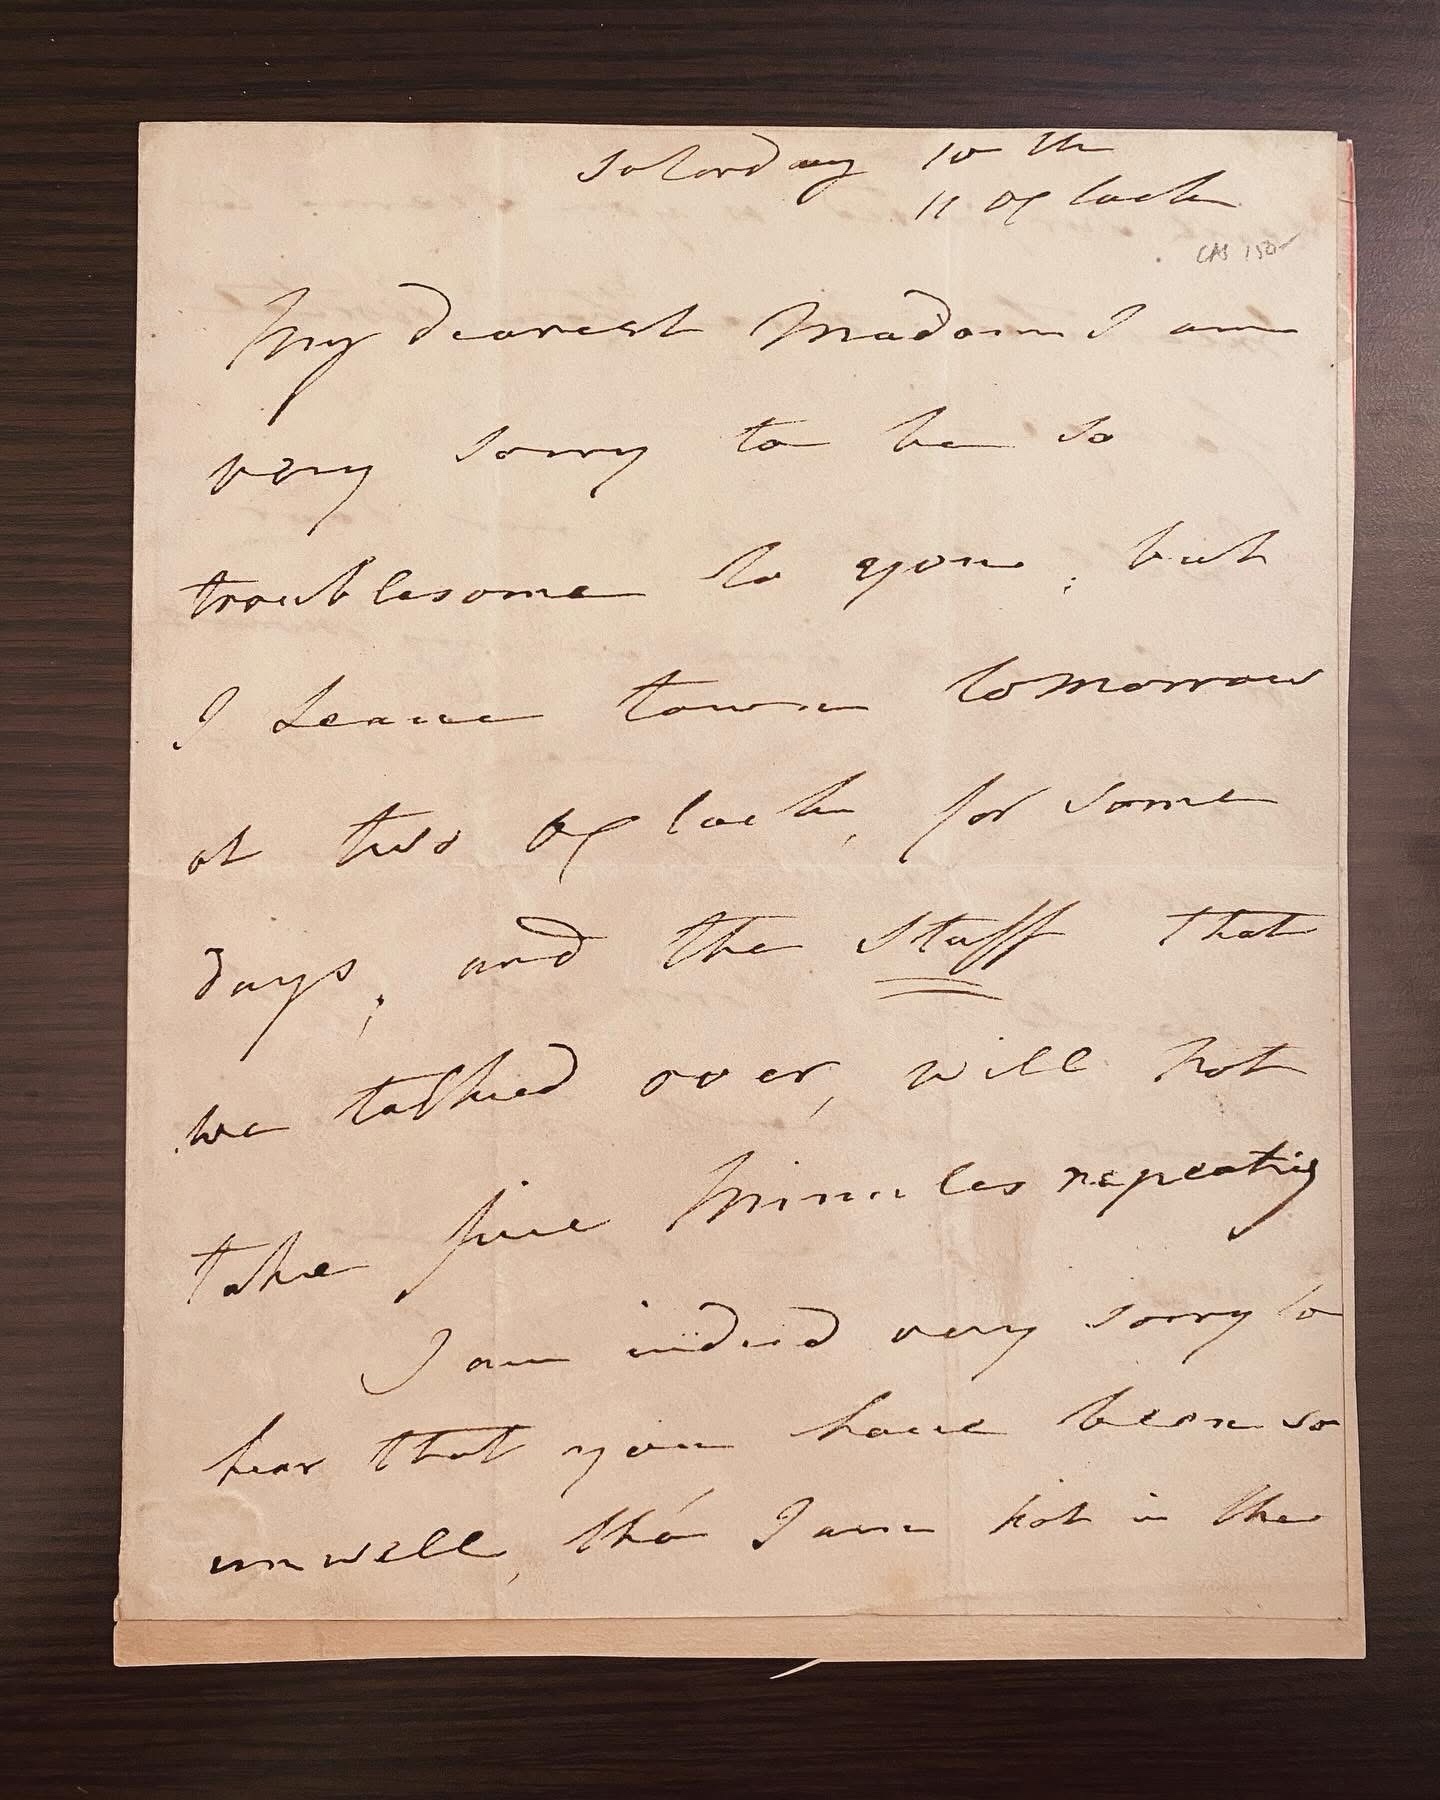 Saturday 10th
11 O'Clock
CAS 150
My dearest Madam I am
very sorry to be so
troublesome to you, but
I Leave town tomorrow
at two O'Clock, for some
days, and the Stuff that
we talked over, will not
take five Minutes repeating
I am indeed very sorry to
hear that you have been so
unwell, tho' I am not in the